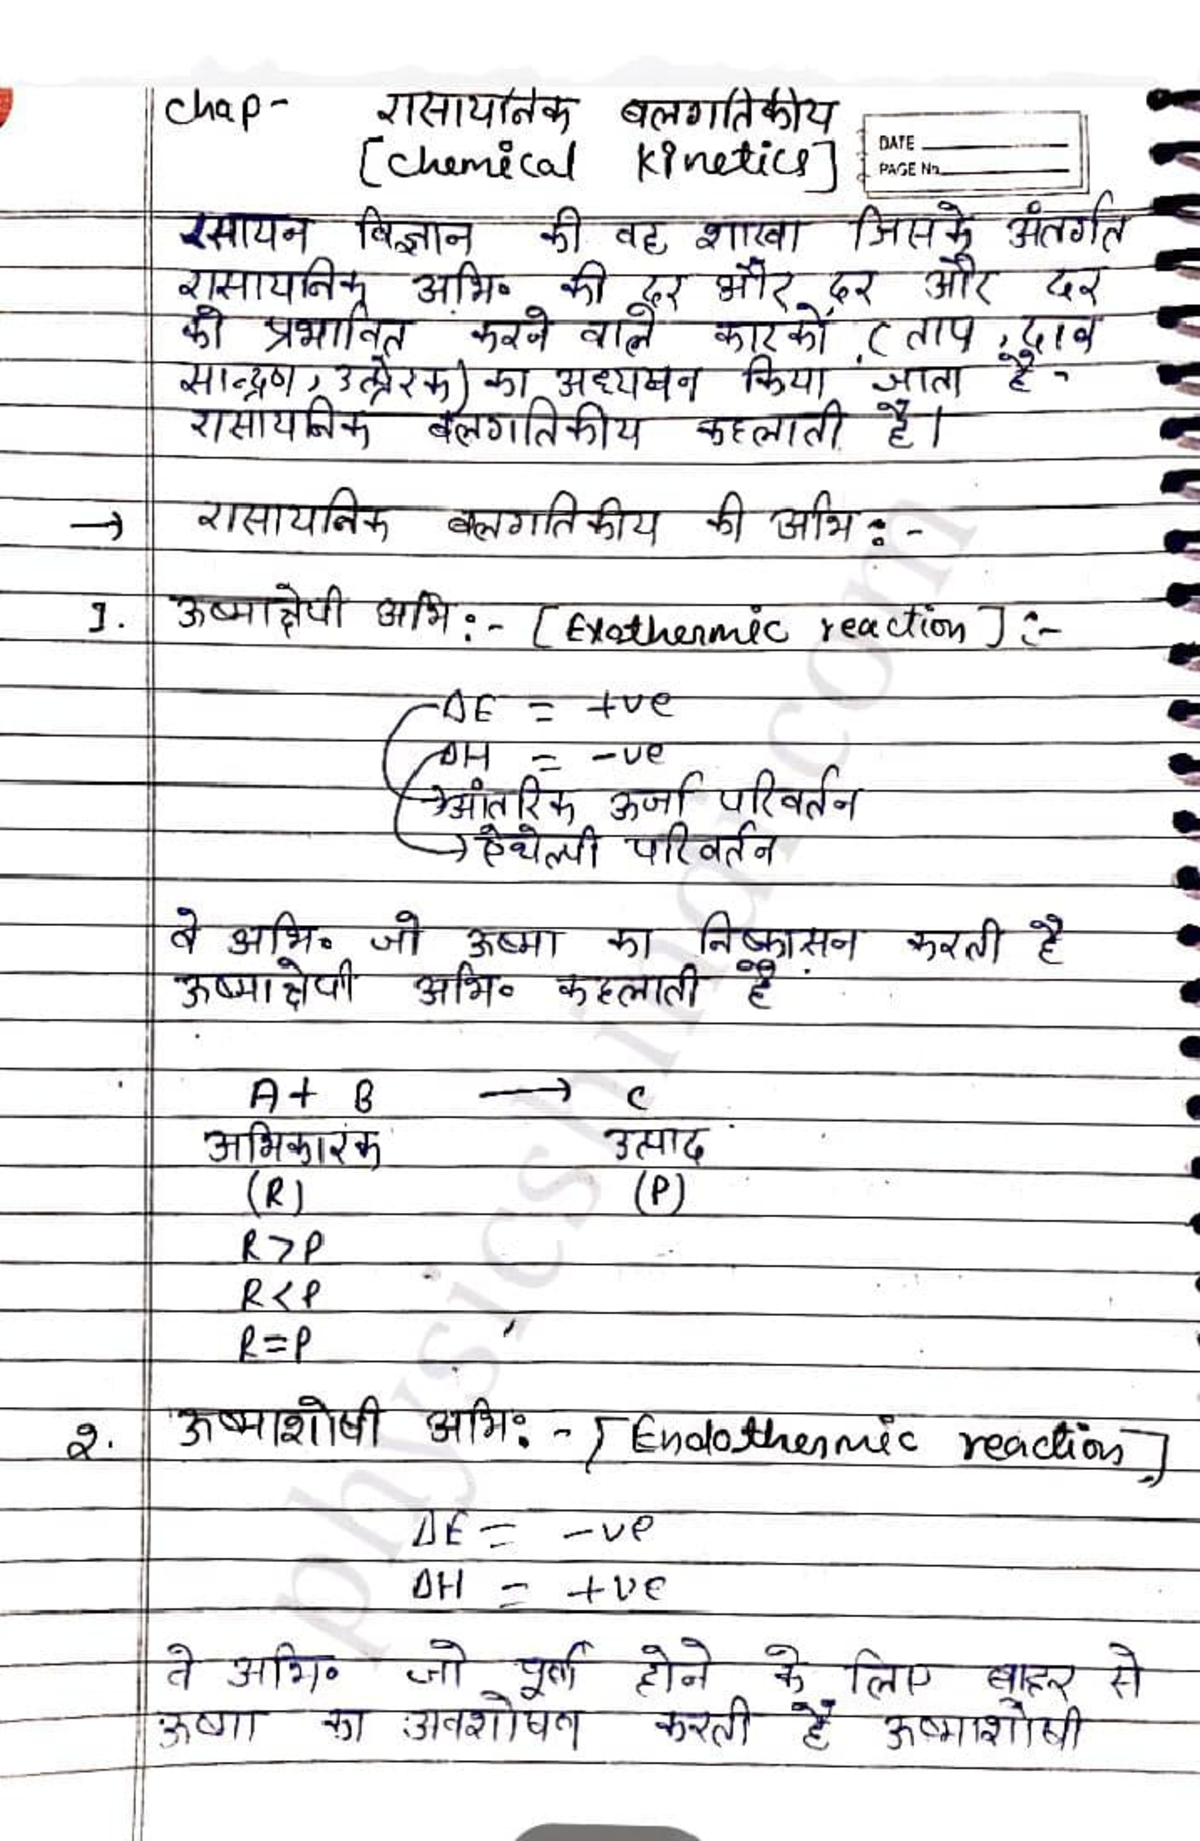 chap- रासायनिक बलगतिकीय
[chemical kinetics]
DATE
PAGE No.
रसायन विज्ञान की वह शाखा जिसके अंतर्गत
रासायनिक अभि० की दर और दर और दर
को प्रभावित करने वाले कारकों (ताप, दाब
सान्द्रण, उत्प्रेरक) का अध्ययन किया जाता है-
रासायनिक बलगतिकीय कहलाती है।
→ रासायनिक बलगतिकीय की अभि:-
1. ऊष्माक्षेपी अभि:- [Exothermic reaction]:-
ΔE = +ve
ΔH = -ve
→आंतरिक ऊर्जा परिवर्तन
→ऐंथेल्पी परिवर्तन
वे अभि० जो ऊष्मा का निष्कासन करती है
ऊष्माक्षेपी अभि० कहलाती है
A + B → C
अभिकारक उत्पाद
(R) (P)
R>P
R<P
R=P
2. ऊष्माशोषी अभि:- [Endothermic reaction]
ΔE = -ve
ΔH = +ve
वे अभि० जो पूर्ण होने के लिए बाहर से
ऊष्मा का अवशोषण करती हैं ऊष्माशोषी
physicshindi.com